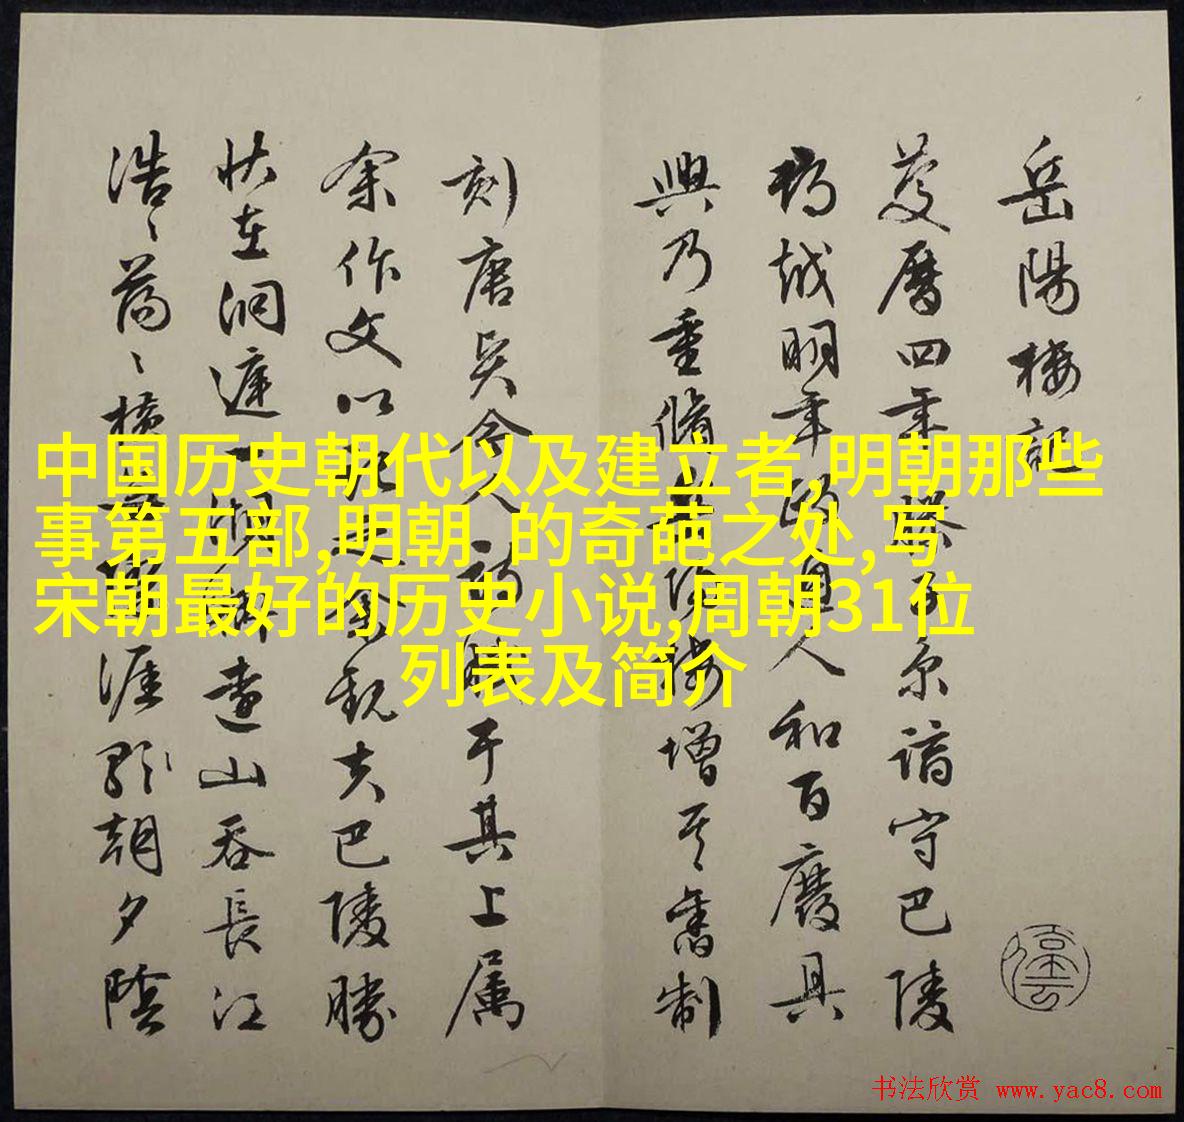 岳陽樓記
慶曆四年子京謫守巴陵
郡越明年政通人和百廢具
興乃重脩岳陽樓增其舊制
刻唐賢今人詩賦于其上屬
余作文以記之余觀夫巴陵勝
狀在洞庭一湖銜遠山吞長江
浩〻蕩〻橫無際涯朝夕陰
中国历史朝代以及建立者,明朝那些
事第五部,明朝 的奇葩之处,写
宋朝最好的历史小说,周朝31位
列表及简介
书法欣赏 www.yac8.com